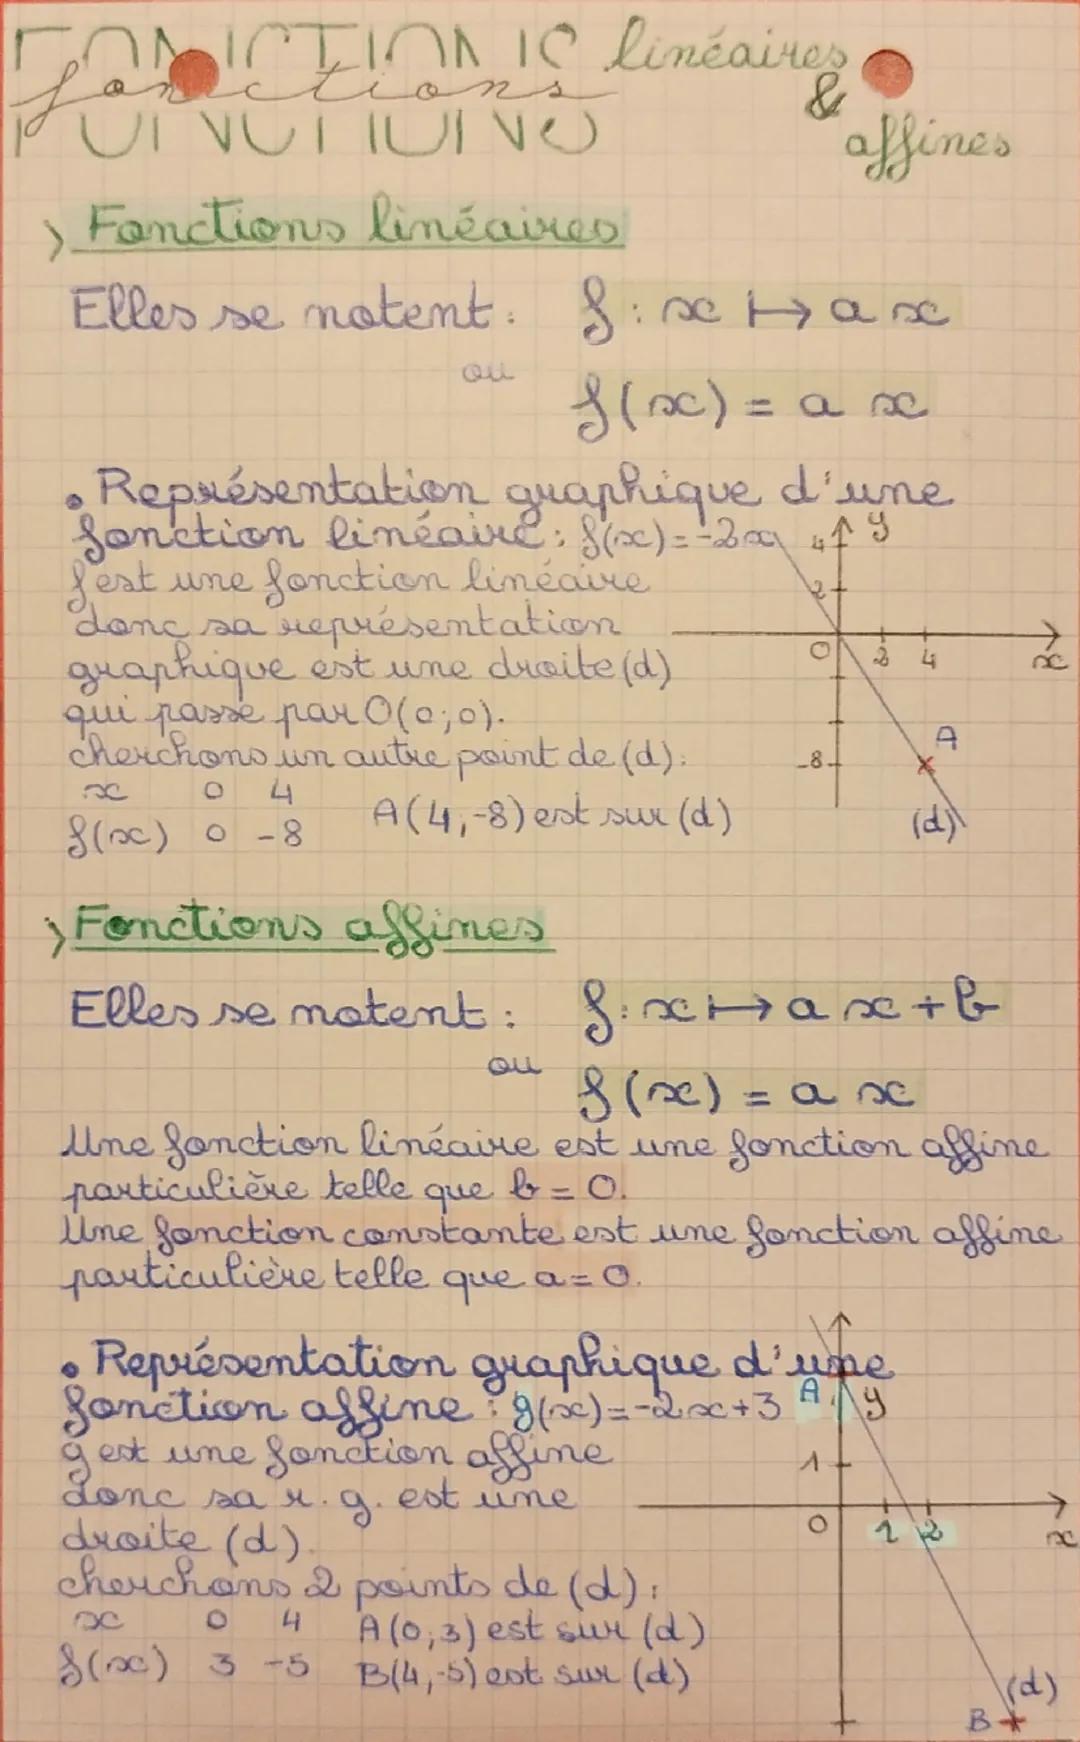 FONCTIONS linéaires
fonctions
&
FONCTIONS
affines
> Fonctions linéaires
Elles se notent : f : x ↦ a x
ou
f(x) = a x
• Représentation graphique d'une
fonction linéaire : f(x) = -2x
f est une fonction linéaire
donc sa représentation
graphique est une droite (d)
qui passe par O(0;0).
cherchons un autre point de (d) :
x 0 4
f(x) 0 -8
A(4;-8) est sur (d)
4 y
2
O 2 4 x
-8 A
(d)
> Fonctions affines
Elles se notent : f : x ↦ a x + b
ou
f(x) = a x
Une fonction linéaire est une fonction affine
particulière telle que b = 0.
Une fonction constante est une fonction affine
particulière telle que a = 0.
• Représentation graphique d'une
fonction affine : g(x) = -2x+3
g est une fonction affine
donc sa r. g. est une
droite (d).
cherchons 2 points de (d) :
x 0 4
f(x) 3 -5
A(0;3) est sur (d)
B(4;-5) est sur (d)
A y
1
O 1 2 x
(d)
B